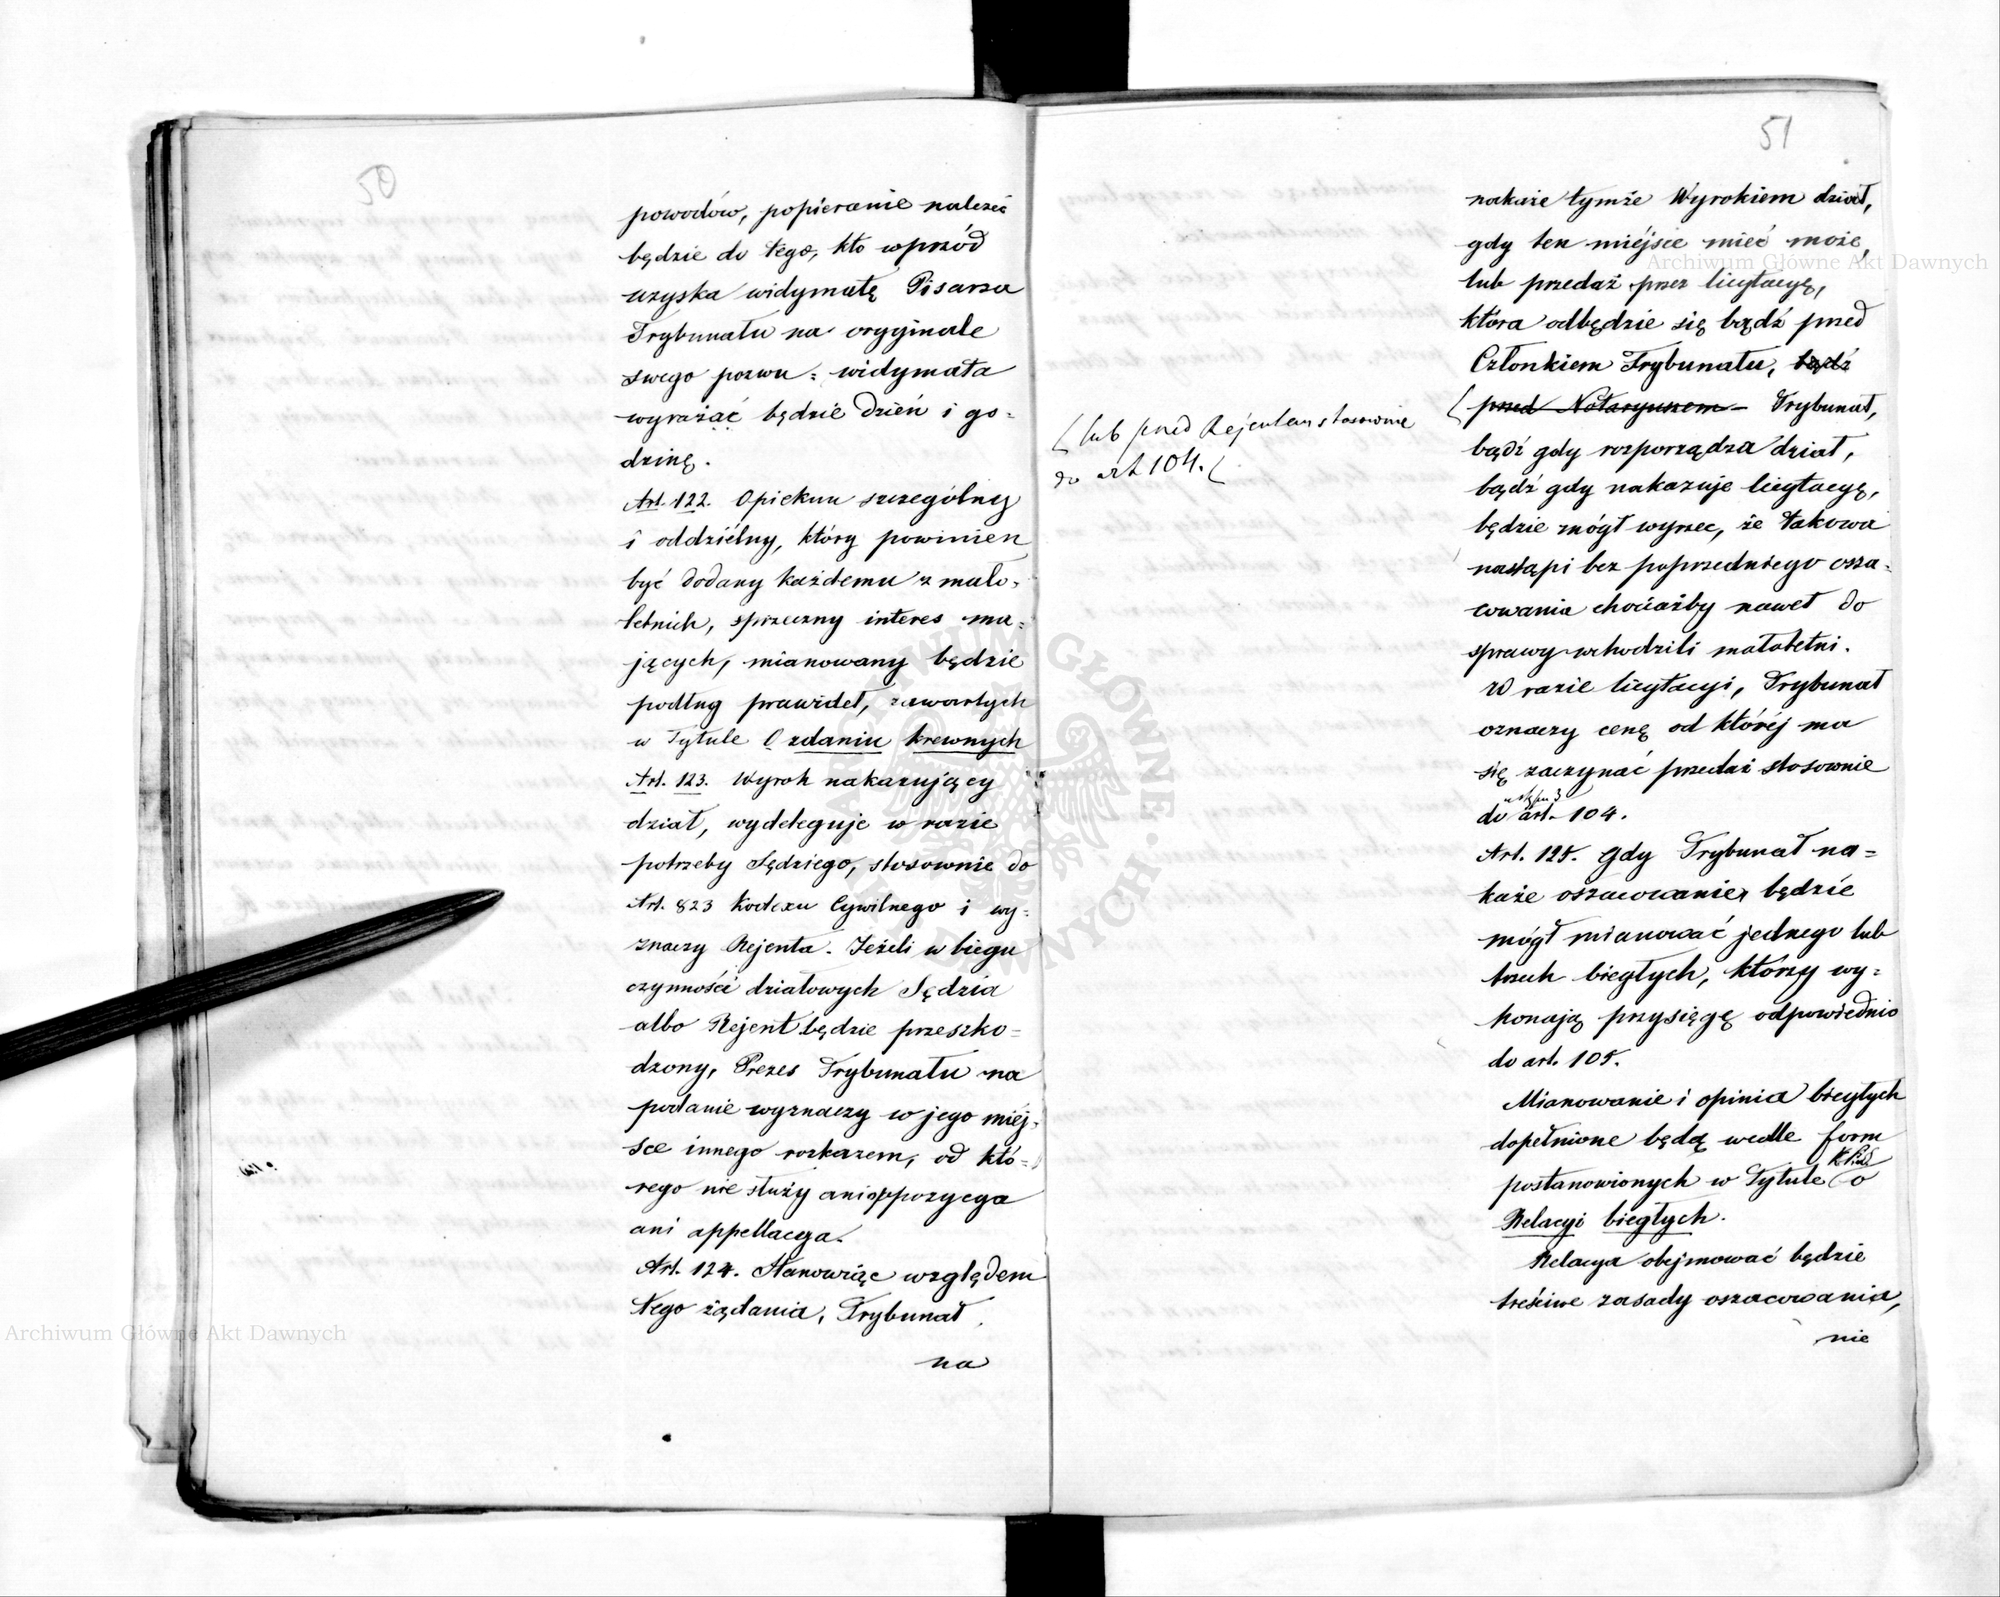 50
powodów, popieranie należeć
będzie do tego, kto wprzód
uzyska widymatę Pisarza
Trybunału na oryginale
swego pozwu: widymata
wyrażać będzie dzień i go-
dzinę.
Art. 122. Opiekun szczególny
i oddzielny, który powinien
być dodany każdemu z mało-
letnich, sprzeczny interes ma-
jących, mianowany będzie
podług prawideł, zawartych
w Tytule O zdaniu krewnych
Art. 123. Wyrok nakazujący
dział, wydeleguje w razie
potrzeby Sędziego, stosownie do
Art. 823 Kodexu Cywilnego i wy-
znaczy Rejenta. Jeżeli w biegu
czynności działowych Sędzia
albo Rejent będzie przeszko-
dzony, Prezes Trybunału na
podanie wyznaczy w jego miéj-
sce innego rozkazem, od któ-
rego nie służy ani oppozycya
ani appellacya.
Art. 124. Stanowiąc względem
tego żądania, Trybunał
na
51
nakaże tymże Wyrokiem dział,
gdy ten miéjsce mieć może,
lub przedaż przez licytacyę,
która odbędzie się bądź przed
Członkiem Trybunału, bądź
przed Notaryuszem - Trybunał,
(lub przed Rejentem stosownie
do art 104.(
bądź gdy rozporządza dział,
bądź gdy nakazuje licytacyę,
będzie mógł wyrzec, że takowa
nastąpi bez poprzedniego osza-
cowania chociażby nawet do
sprawy wchodzili małoletni.
W razie licytacyi, Trybunał
oznaczy cenę od któréj ma
się zaczynać przedaż stosownie
ustępu 3
do art. 104.
Art. 125. Gdy Trybunał na-
każe oszacowanie, będzie
mógł mianować jednego lub
trzech biegłych, którzy wy-
konają przysięgę odpowiednio
do art. 105.
Mianowanie i opinia biegłych
dopełnione będą wedle form
postanowionych w Tytule o
Relacyi biegłych.
Relacya obejmować będzie
treściwe zasady oszacowania,
nie
Archiwum Główne Akt Dawnych
Archiwum Główne Akt Dawnych